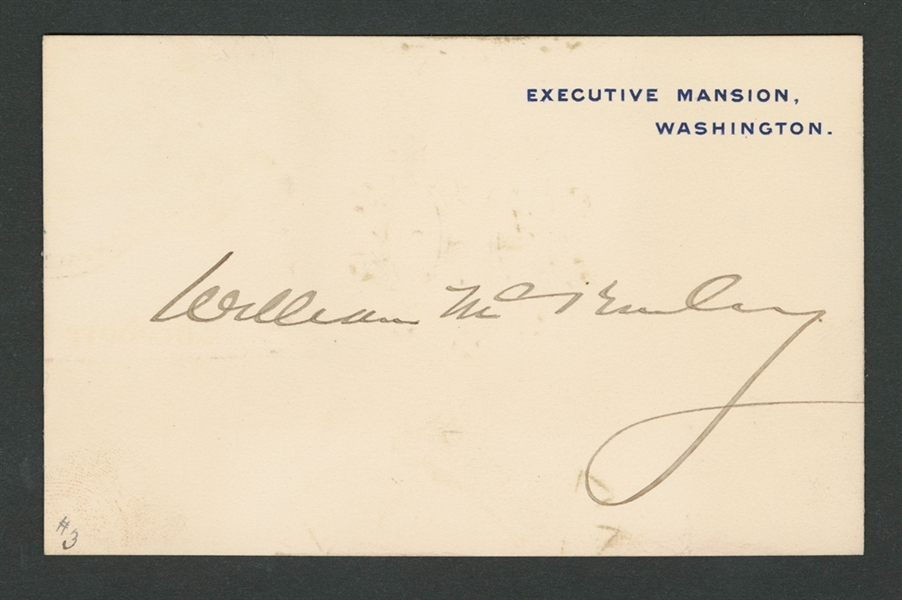 EXECUTIVE MANSION,
WASHINGTON.
William McKinley
#3